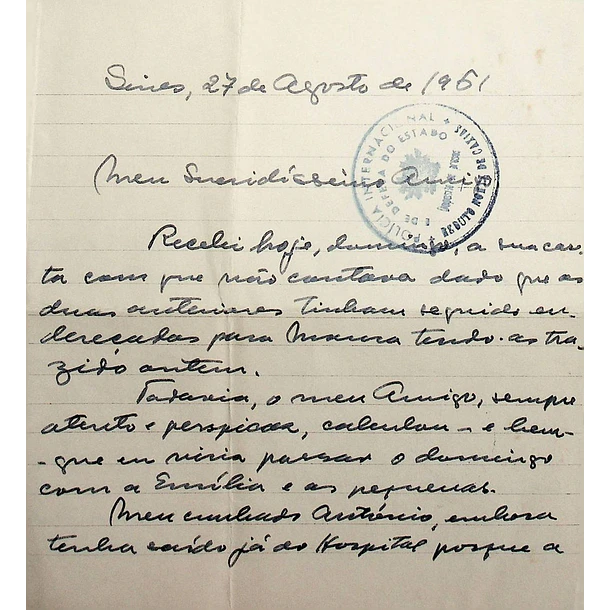 Sines, 27 de Agosto de 1961
Meu Queridíssimo Amigo
POLÍCIA INTERNACIONAL
E DE DEFESA DO ESTADO
REDUTO NORTE
DE CAXIAS
Recebi hoje, domingo, a sua car-
ta com que não contava dado que as
duas anteriores tinham seguido en-
dereçadas para Moura tendo-as tra-
zido ontem.
Todavia, o meu Amigo, sempre
atento e perspicaz, calculou - e bem -
- que eu viria passar o domingo
com a Emília e as pequenas.
Meu cunhado António, embora
tenha saído já do Hospital porque a